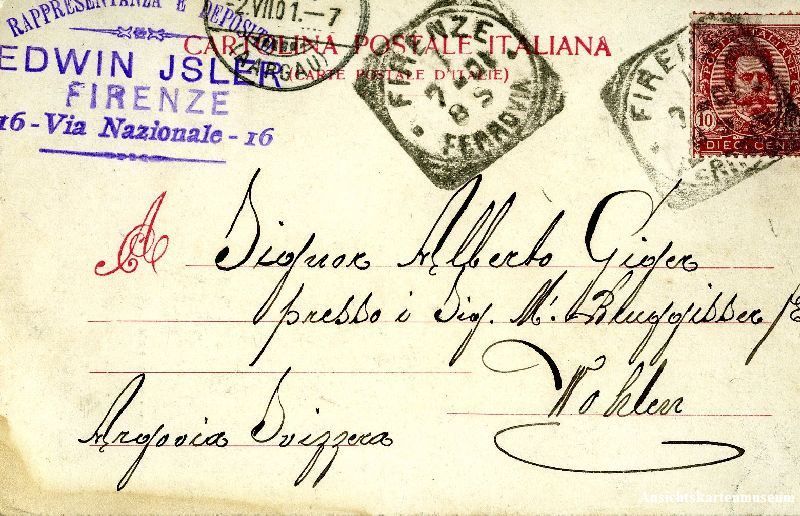 RAPPRESENTANZA E DEPOSITO
EDWIN JSLER
FIRENZE
16 - Via Nazionale - 16
2.VII.01.-7
(AARGAU)
CARTOLINA POSTALE ITALIANA
(CARTE POSTALE D'ITALIE)
FIRENZE
8 S
FERROVIA
FIRENZE
10
DIECI CENT
A Signor Alberto Giger
presso i Sig. Mi. Bruggisser
Wohlen
Argovia Svizzera
Ansichtskartenmuseum